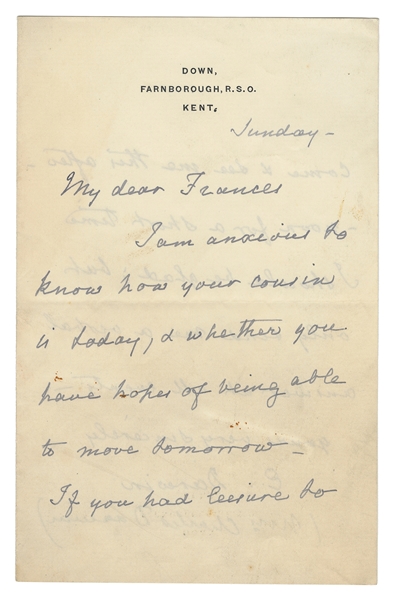 DOWN,
FARNBOROUGH, R.S.O.
KENT.
Sunday -
My dear Frances
I am anxious to
know how your cousin
is today, & whether you
have hopes of being able
to move tomorrow -
If you had leisure to